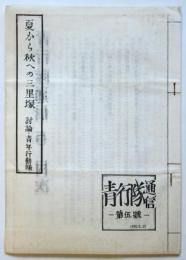 夏から秋への三里塚
討論・青年行動隊
青行隊通信
－第伍號－